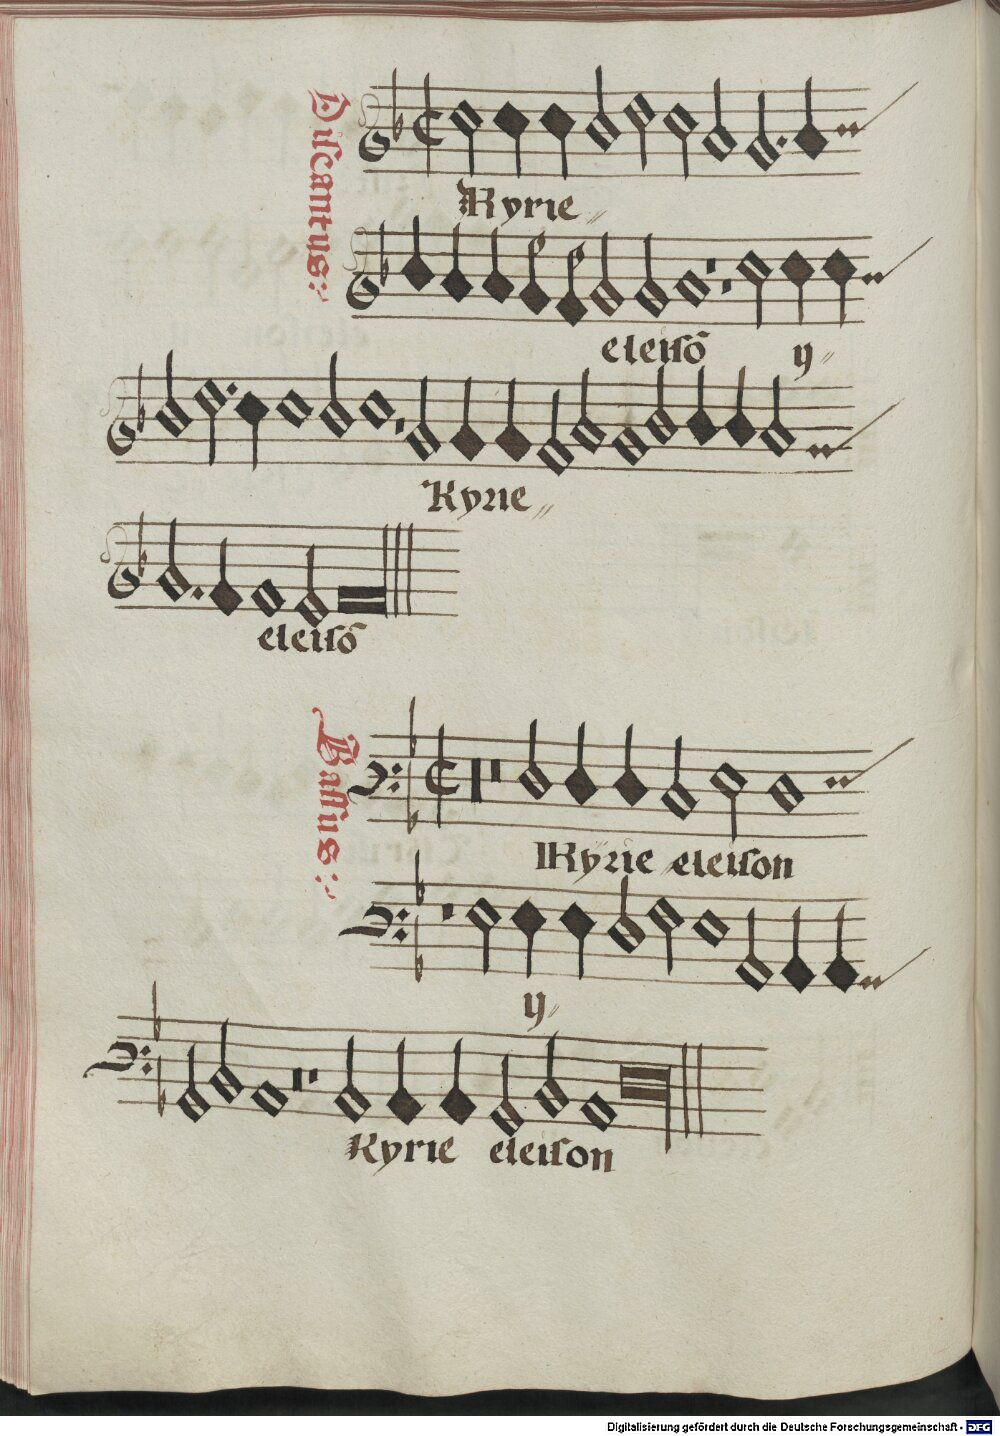 Diſcantus:
Kyrie
eleiſō y
Kyrie
eleiſō
Baſſus:
Kyrie eleiſon
y
Kyrie eleiſon
Digitalisierung gefördert durch die Deutsche Forschungsgemeinschaft - DFG